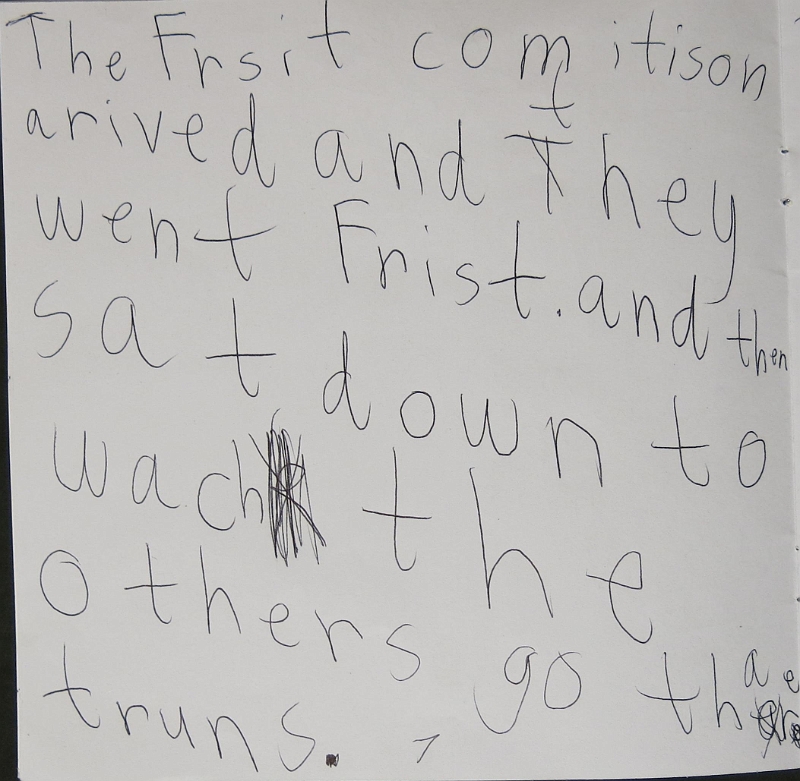 The Frsit comitison
arived and They
went Frist. and then
sat down to
wach the
others go tha e
truns.,